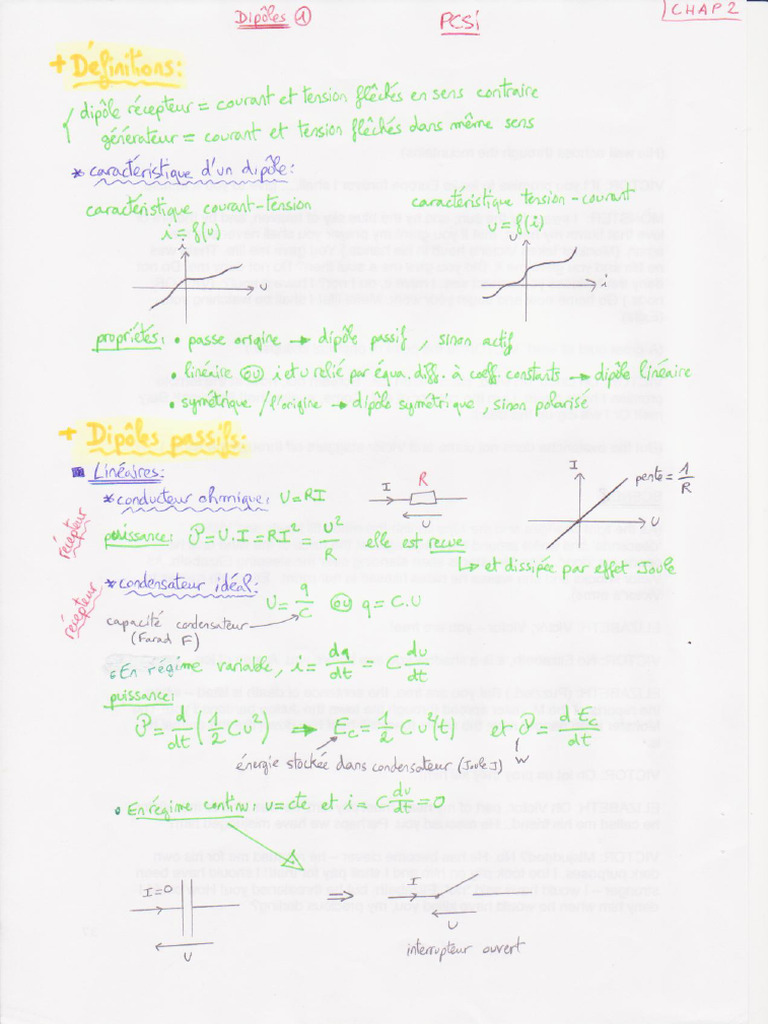 Dipôles ①
PCSI
CHAP 2
+ Définitions:
dipôle récepteur = courant et tension fléchés en sens contraire
générateur = courant et tension fléchés dans même sens
* caractéristique d'un dipôle:
caractéristique courant-tension
caractéristique tension-courant
i = f(u)
u = f(i)
i
U
U
i
propriétés: • passe origine → dipôle passif, sinon actif
• linéaire ou i et u relié par équa. diff. à coeff constants → dipôle linéaire
• symétrique / l'origine → dipôle symétrique, sinon polarisé
+ Dipôles passifs:
Linéaires:
récepteur
* conducteur ohmique: U = RI
I
R
U
I
pente = 1/R
U
puissance: P = U.I = RI² = U²/R elle est recue
↳ et dissipée par effet Joule
récepteur
* condensateur idéal:
U = q/C ou q = C.U
capacité condensateur
(Farad F)
• En régime variable, i = dq/dt = C du/dt
puissance:
P = d/dt (1/2 Cu²) → Ec = 1/2 Cu²(t) et P = dEc/dt
énergie stockée dans condensateur (Joule J)
W
• En régime continu: u = cte et i = C du/dt = 0
I=0
U
⇒
I
U
interrupteur ouvert